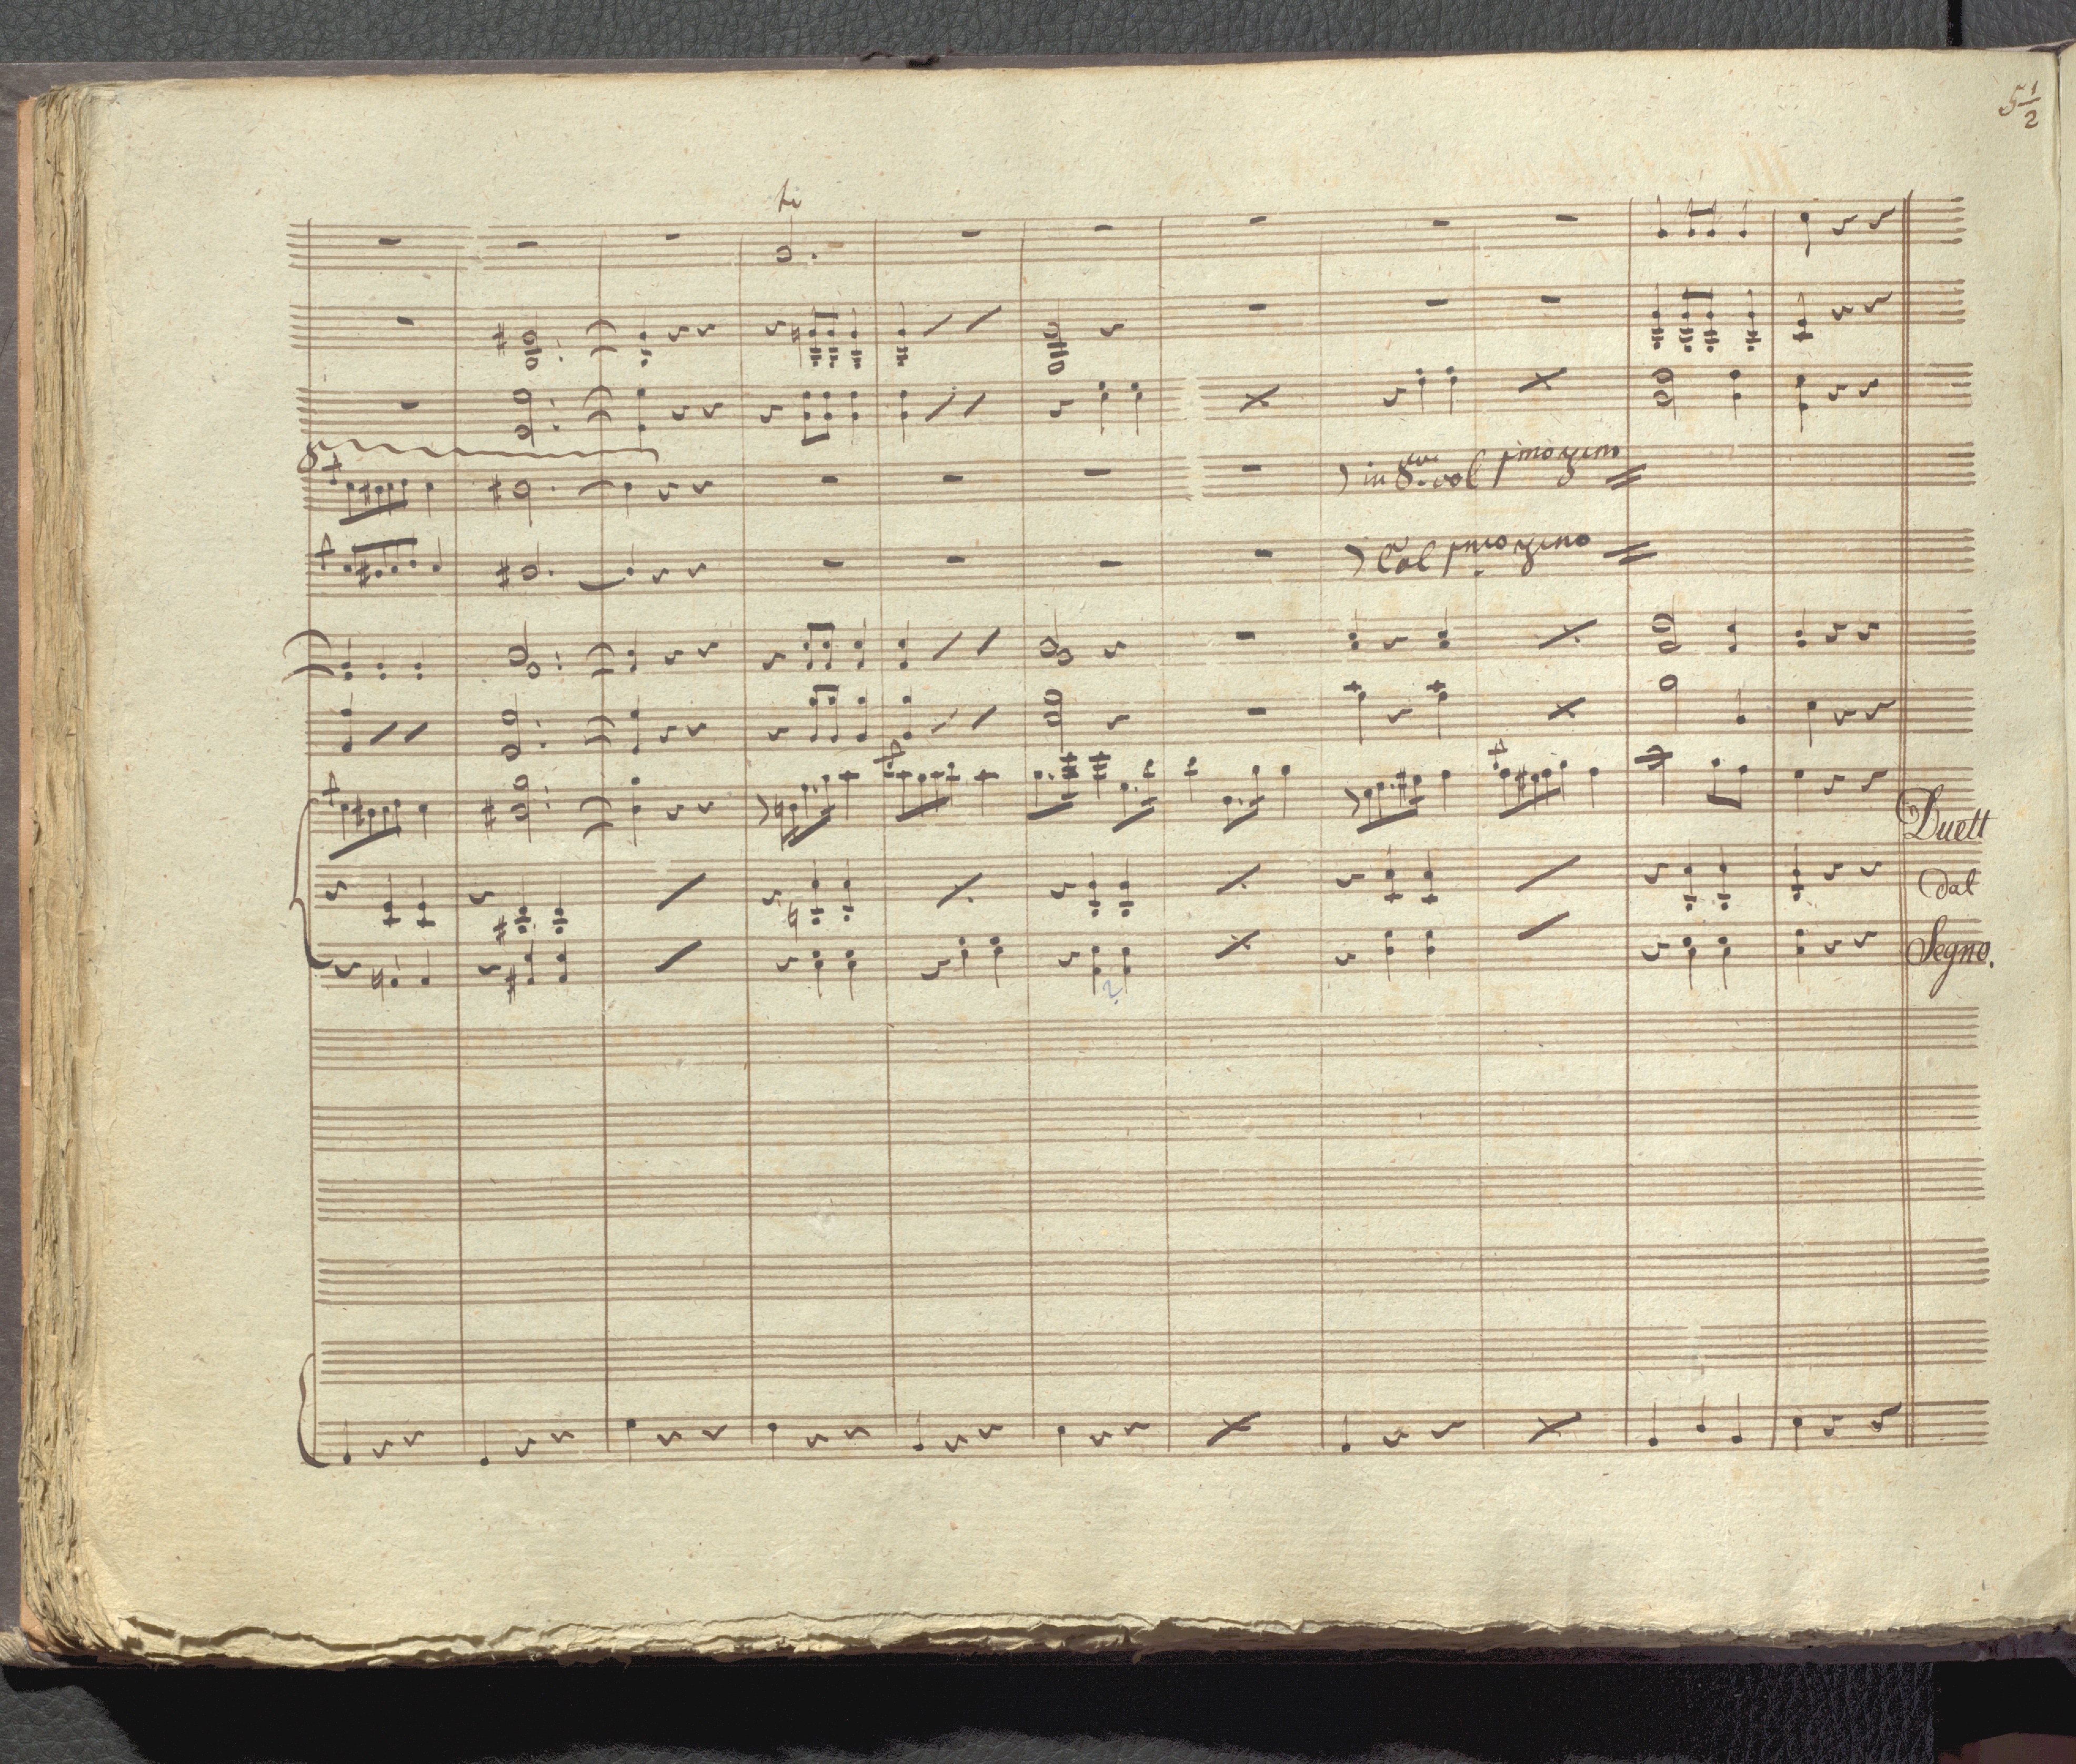 5 1/2
tr
8
in 8va col primo violino
Col primo violino
Duett
dal
Segno.
2